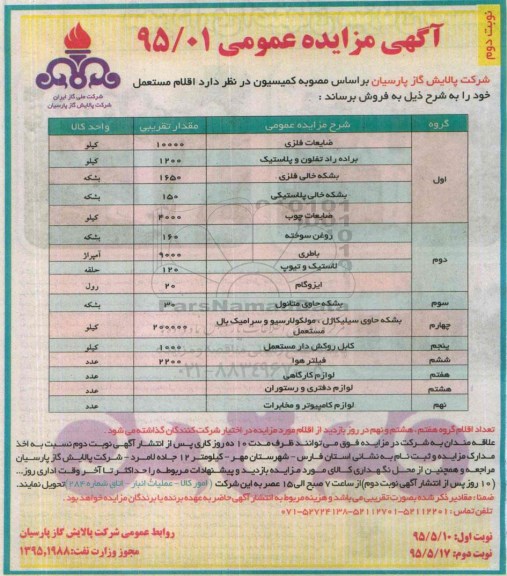 نوبت دوم
آگهی مزایده عمومی ۹۵/۰۱
شرکت ملی گاز ایران
شرکت پالایش گاز پارسیان
شرکت پالایش گاز پارسیان براساس مصوبه کمیسیون در نظر دارد اقلام مستعمل
خود را به شرح ذیل به فروش برساند :
گروه شرح مزایده عمومی مقدار تقریبی واحد کالا
اول ضایعات فلزی ۱۰۰۰۰ کیلو
براده راد تفلون و پلاستیک ۱۲۰۰ کیلو
بشکه خالی فلزی ۱۶۵۰ بشکه
بشکه خالی پلاستیکی ۱۵۰ بشکه
ضایعات چوب ۴۰۰۰ کیلو
دوم روغن سوخته ۱۶۰ بشکه
باطری ۹۰۰۰ آمپراژ
لاستیک و تیوپ ۱۲۰ حلقه
ایزوگام ۲۰ رول
سوم بشکه حاوی متانول ۳۰ بشکه
چهارم بشکه حاوی سیلیکاژل ، مولکولارسیو و سرامیک بال مستعمل ۲۰۰۰۰۰ کیلو
پنجم کابل روکش دار مستعمل ۱۰۰۰ کیلو
ششم فیلتر هوا ۲۲۰۰ عدد
هفتم لوازم کارگاهی عدد
هشتم لوازم دفتری و رستوران عدد
نهم لوازم کامپیوتر و مخابرات عدد
ParsNamadData
تعداد اقلام گروه هفتم ، هشتم و نهم در روز بازدید از اقلام مورد مزایده در اختیار شرکت کنندگان گذاشته می شود.
علاقه مندان به شرکت در مزایده فوق می توانند ظرف مدت ۱۰ ده روز کاری پس از انتشار آگهی نوبت دوم نسبت به اخذ
مدارک مزایده و ثبت نام به نشانی استان فارس - شهرستان مهر - کیلومتر ۱۲ جاده لامرد - شرکت پالایش گاز پارسیان
مراجعه و همچنین از محل نگهداری کالای مورد مزایده بازدید و پیشنهادات مربوطه را حداکثر تا آخر وقت اداری روز...
(۱۰ روز پس از انتشار آگهی نوبت دوم) از ساعت ۷ صبح الی ۱۵ عصر به این شرکت ( امور کالا - عملیات انبار - اتاق شماره ۲۸۲) تحویل نمایند.
ضمنا : مقادیر ذکر شده بصورت تقریبی می باشد و هزینه مربوط به انتشار آگهی حاضر به عهده برنده یا برندگان مزایده خواهد بود.
تلفن تماس : ۵۲۱۱۲۲۰۱-۵۲۱۱۲۷۰۱-۵۲۷۲۴۱۳۸-۰۷۱
نوبت اول: ۹۵/۵/۱۰ روابط عمومی شرکت پالایش گاز پارسیان
نوبت دوم: ۹۵/۵/۱۷ مجوز وزارت نفت: ۱۳۹۵,۱۹۸۸